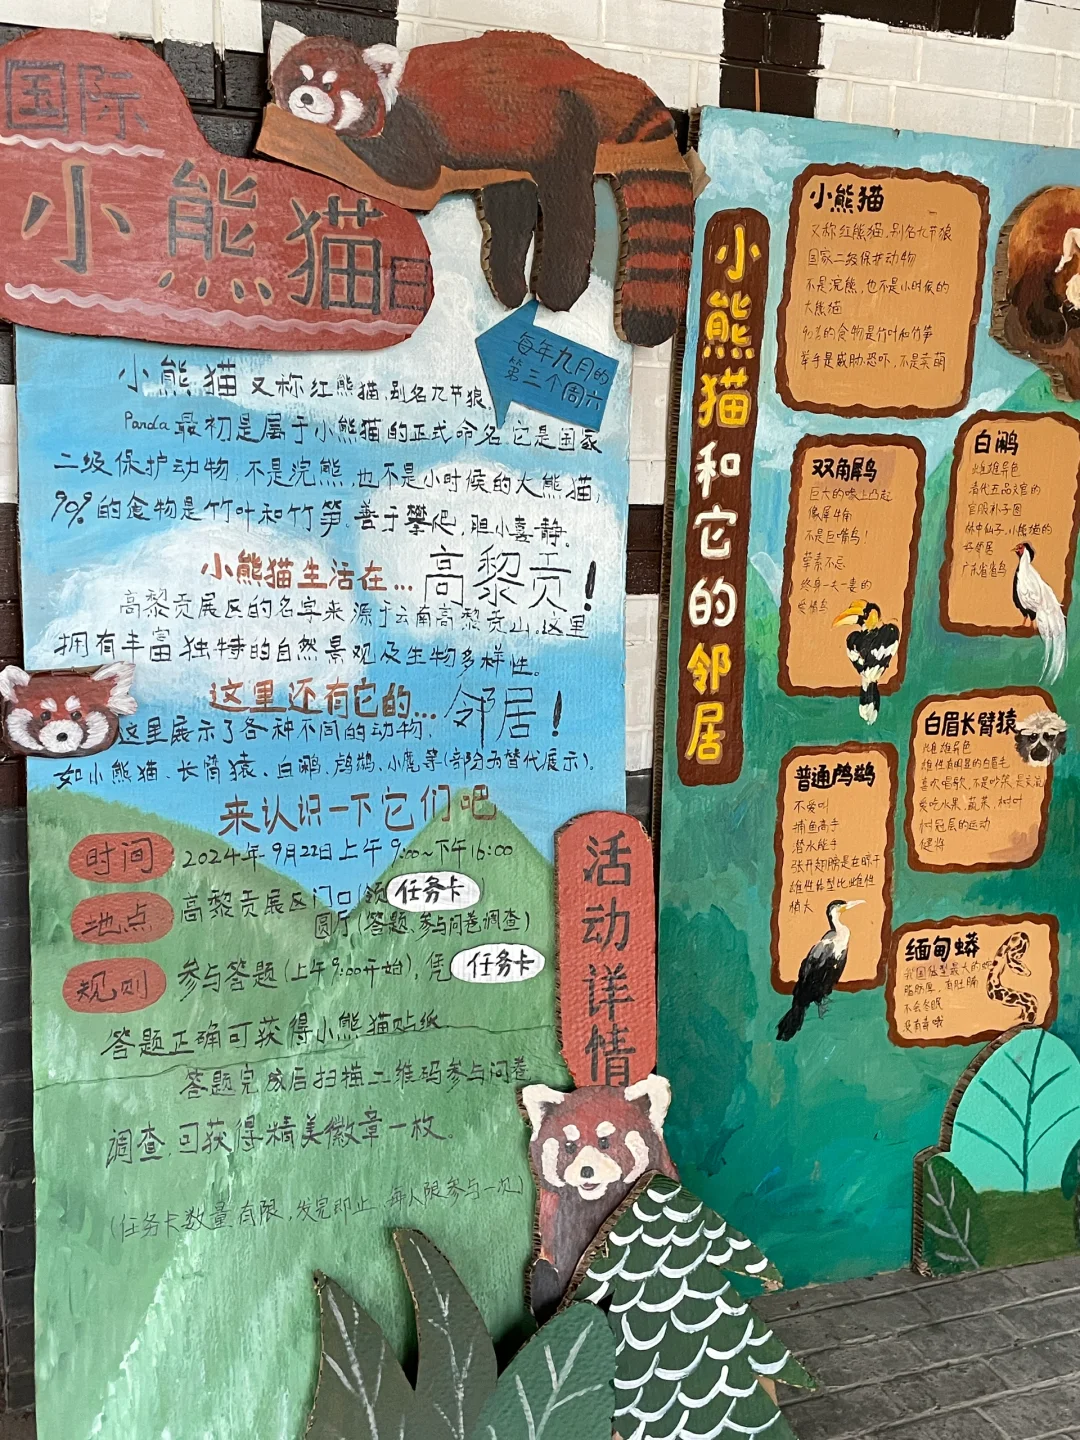 国际
小熊猫日
每年九月的
第三个周六
小熊猫 又称红熊猫,别名九节狼,
Panda最初是属于小熊猫的正式命名,它是国家
二级保护动物,不是浣熊,也不是小时候的大熊猫,
90%的食物是竹叶和竹笋,善于攀爬,胆小喜静。
小熊猫生活在...高黎贡!
高黎贡展区的名字来源于云南高黎贡山,这里
拥有丰富独特的自然景观及生物多样性。
这里还有它的...邻居!
这里展示了各种不同的动物,
如小熊猫、长臂猿、白鹇、鸬鹚、小鹿等(部分为替代展示)。
来认识一下它们吧
活动详情
时间 2024年9月22日上午9:00~下午16:00
地点 高黎贡展区门口(领任务卡)
圆厅(答题、参与问卷调查)
规则 参与答题(上午9:00开始),凭任务卡
答题正确可获得小熊猫贴纸
答题完成后扫描二维码参与问卷
调查,可获得精美徽章一枚。
(任务卡数量有限,发完即止,每人限参与一次)
小熊猫和它的邻居
小熊猫
又称红熊猫,别名九节狼
国家二级保护动物
不是浣熊,也不是小时候的
大熊猫
90%的食物是竹叶和竹笋
举手是威胁恐吓,不是卖萌
双角犀鸟
巨大的喙上凸起
像犀牛角
不是巨嘴鸟!
荤素不忌
终身一夫一妻的
爱情鸟
白鹇
雌雄异色
清代五品文官的
官服补子图
林中仙子,小熊猫的
好邻居
广东省省鸟
普通鸬鹚
不爱叫
捕鱼高手
潜水能手
张开翅膀是在晾干
雄性体型比雌性
稍大
白眉长臂猿
雌雄异色
雄性有明显的白眉毛
喜欢唱歌,不是吵架,是交流
爱吃水果、蔬菜、树叶
树冠层的运动
健将
缅甸蟒
我国体型最大的蛇
脂肪厚,有肚腩
不会冬眠
没有毒哦